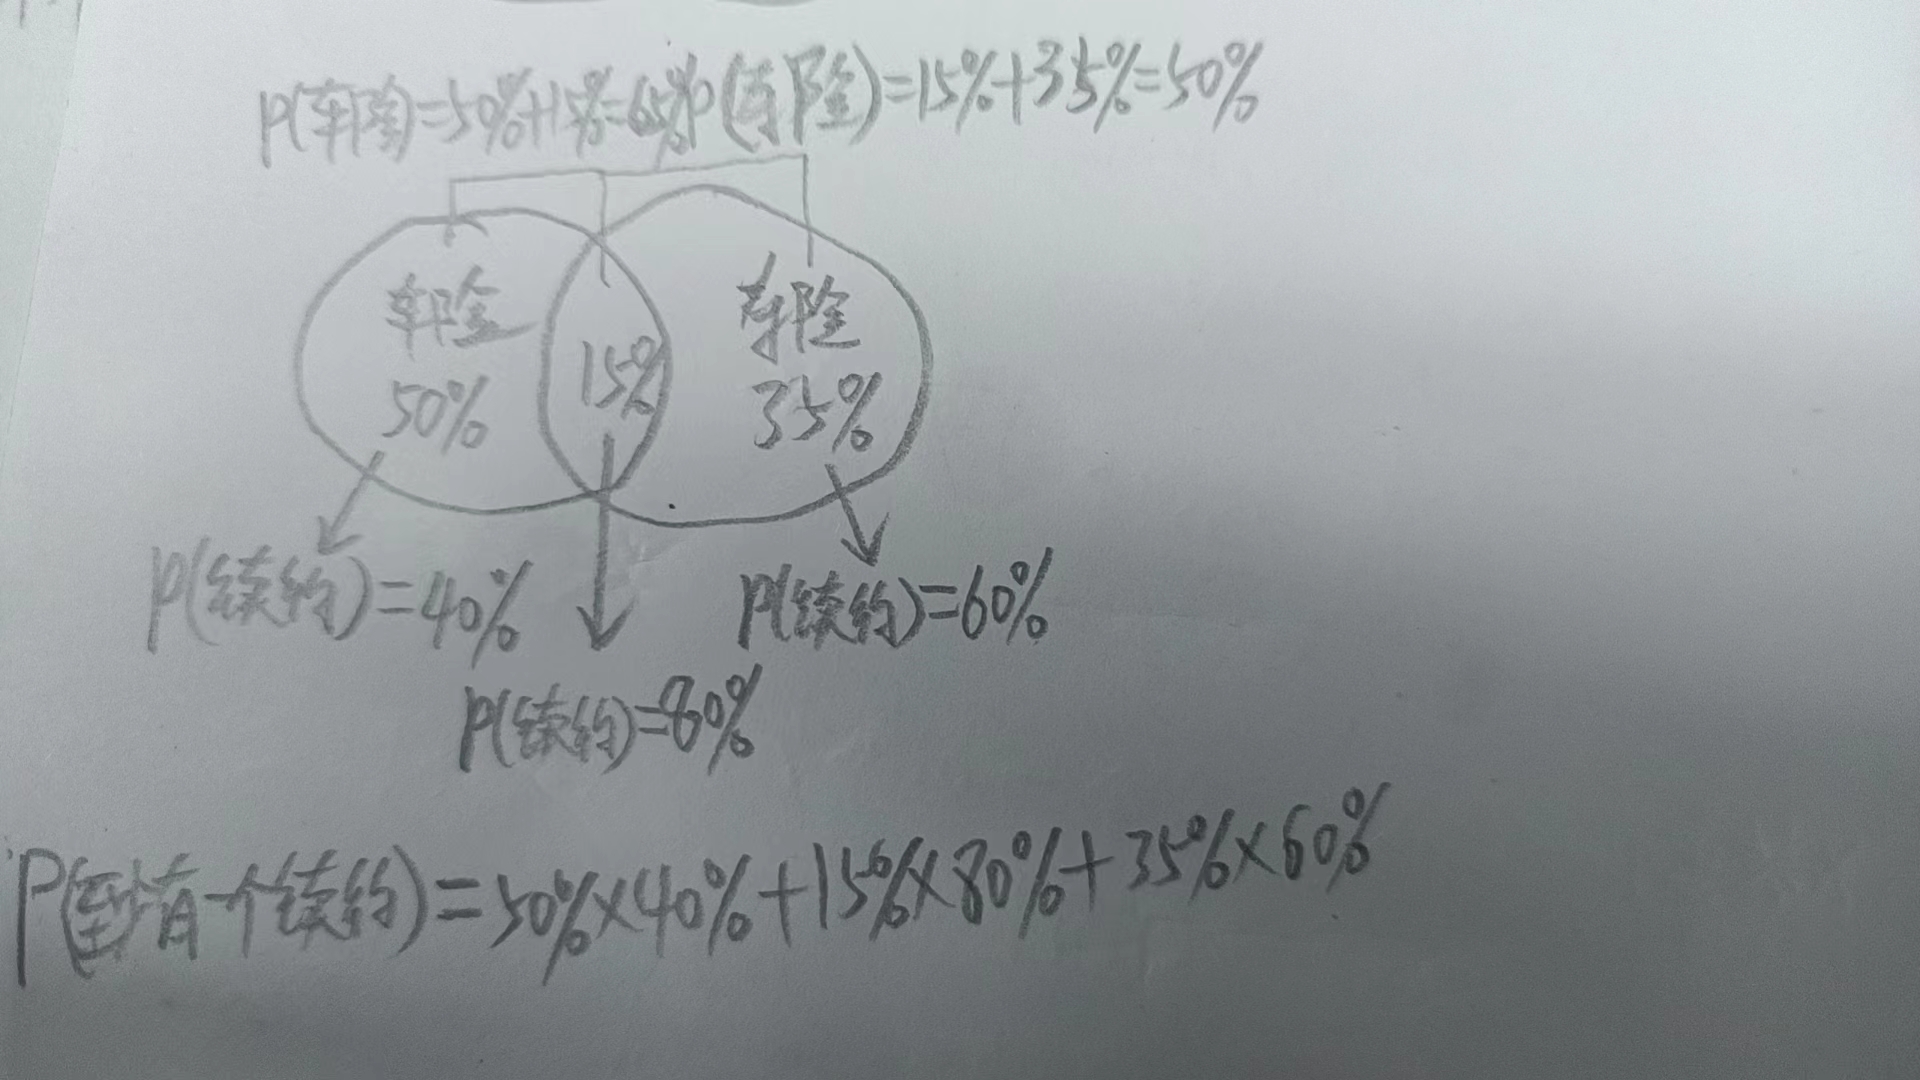 P(车险)=50%+15%=65% P(寿险)=15%+35%=50%
车险 15% 寿险
50% 35%
P(续约)=40% P(续约)=60%
P(续约)=80%
P(至少有一个续约)=50%×40%+15%×80%+35%×60%